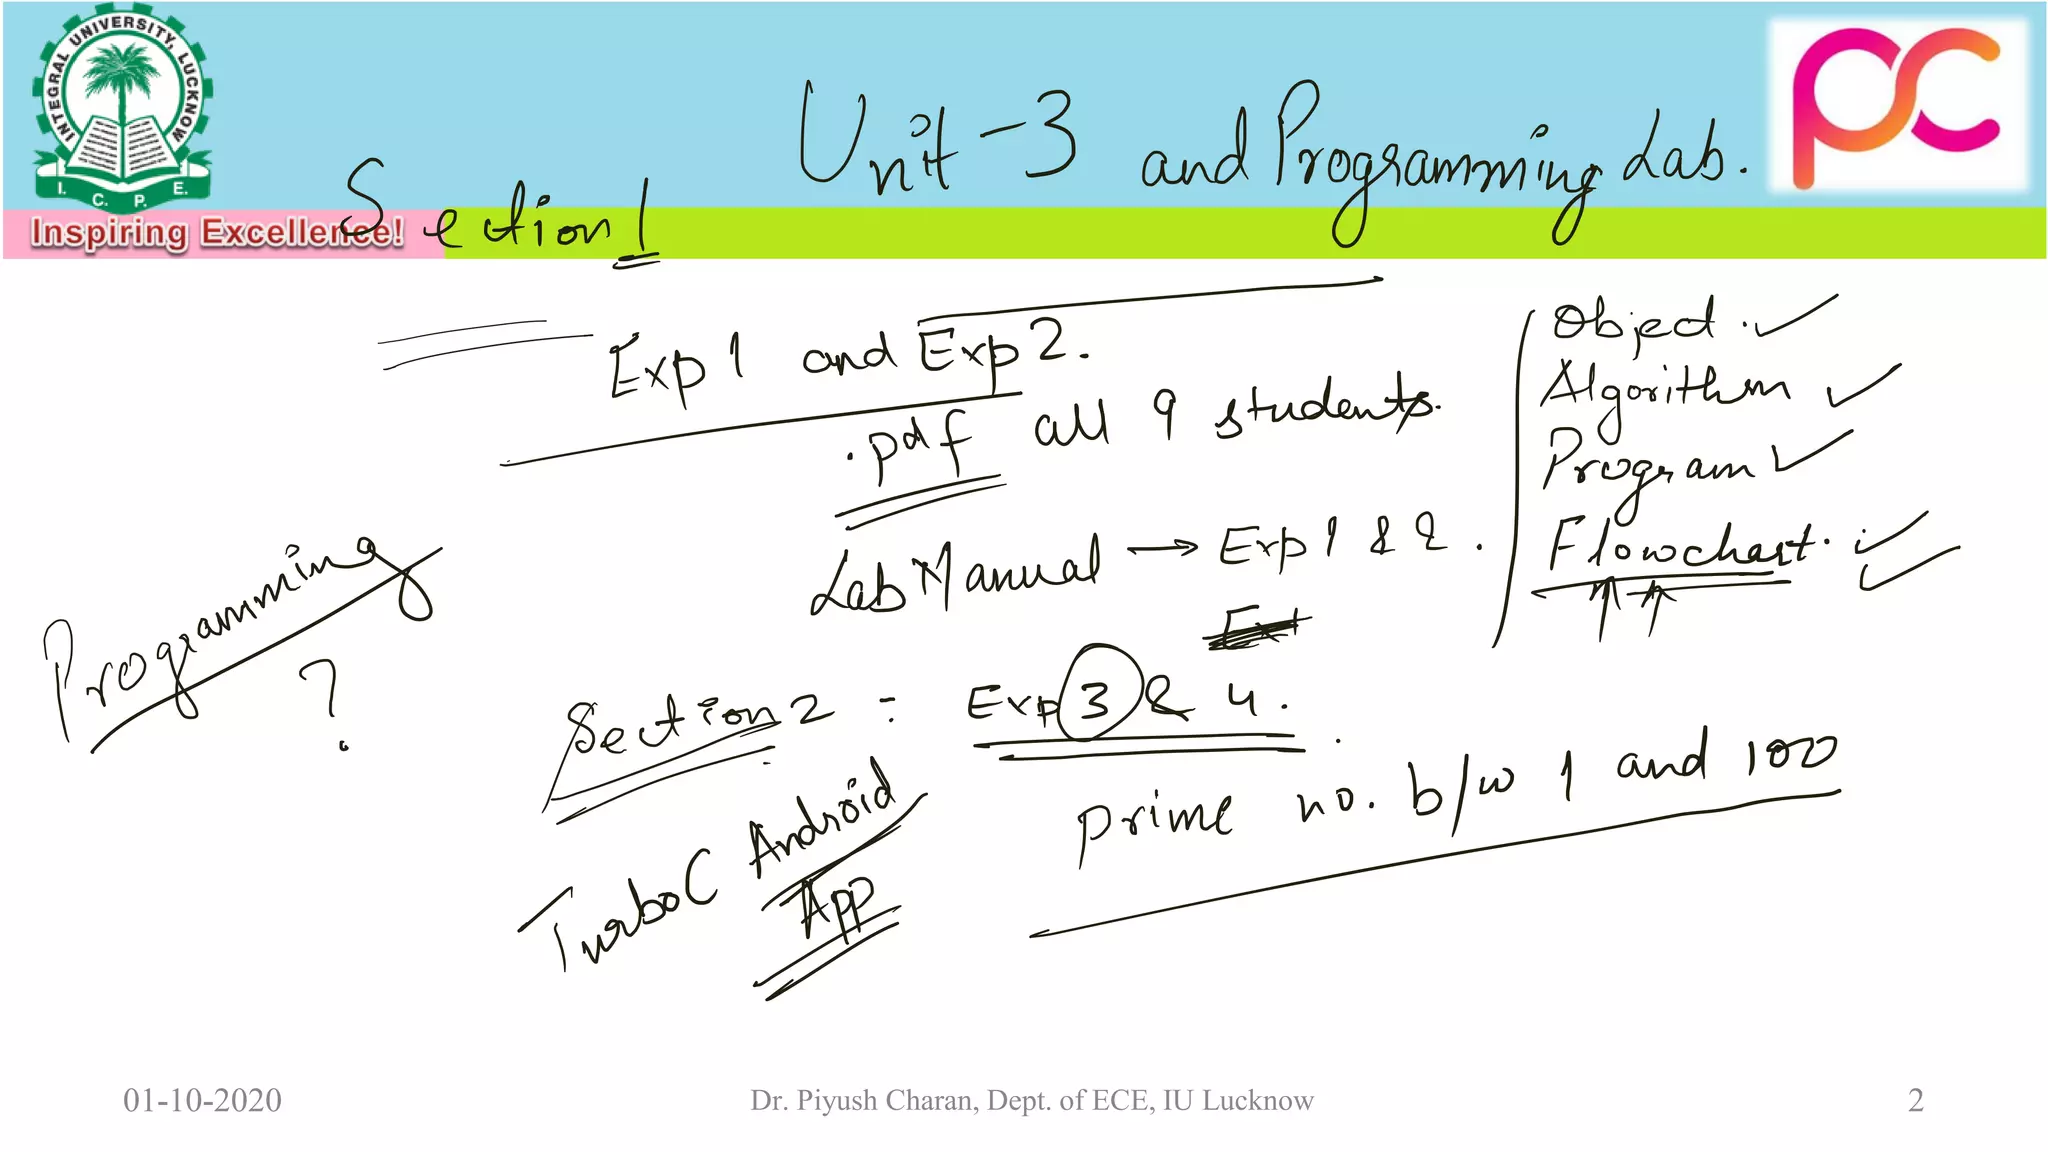 INTEGRAL UNIVERSITY, LUCKNOW
I. C. P. E.
Inspiring Excellence!
PC
Unit-3 and Programming Lab.
Section 1
Exp 1 and Exp 2.
.pdf all 9 students.
Lab Manual → Exp 1 & 2.
Object. ✓
Algorithm ✓
Program ✓
Flowchart. ✓✓
Programming
?
Section 2 : Exp 3 & 4.
prime no. b/w 1 and 100
Turbo C Android
App
01-10-2020
Dr. Piyush Charan, Dept. of ECE, IU Lucknow
2